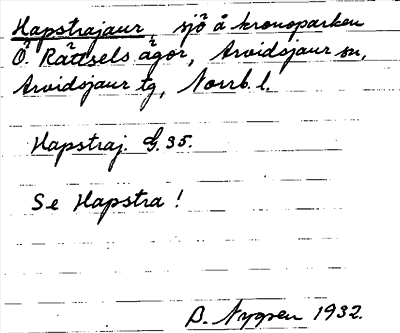 Hapstrajaur, sjö å kronoparken
Ö. Rättsels ägor, Arvidsjaur sn,
Arvidsjaur tg, Norrb. l.
Hapstraj. G. 35.
Se Hapstra!
B. Nygren 1932.